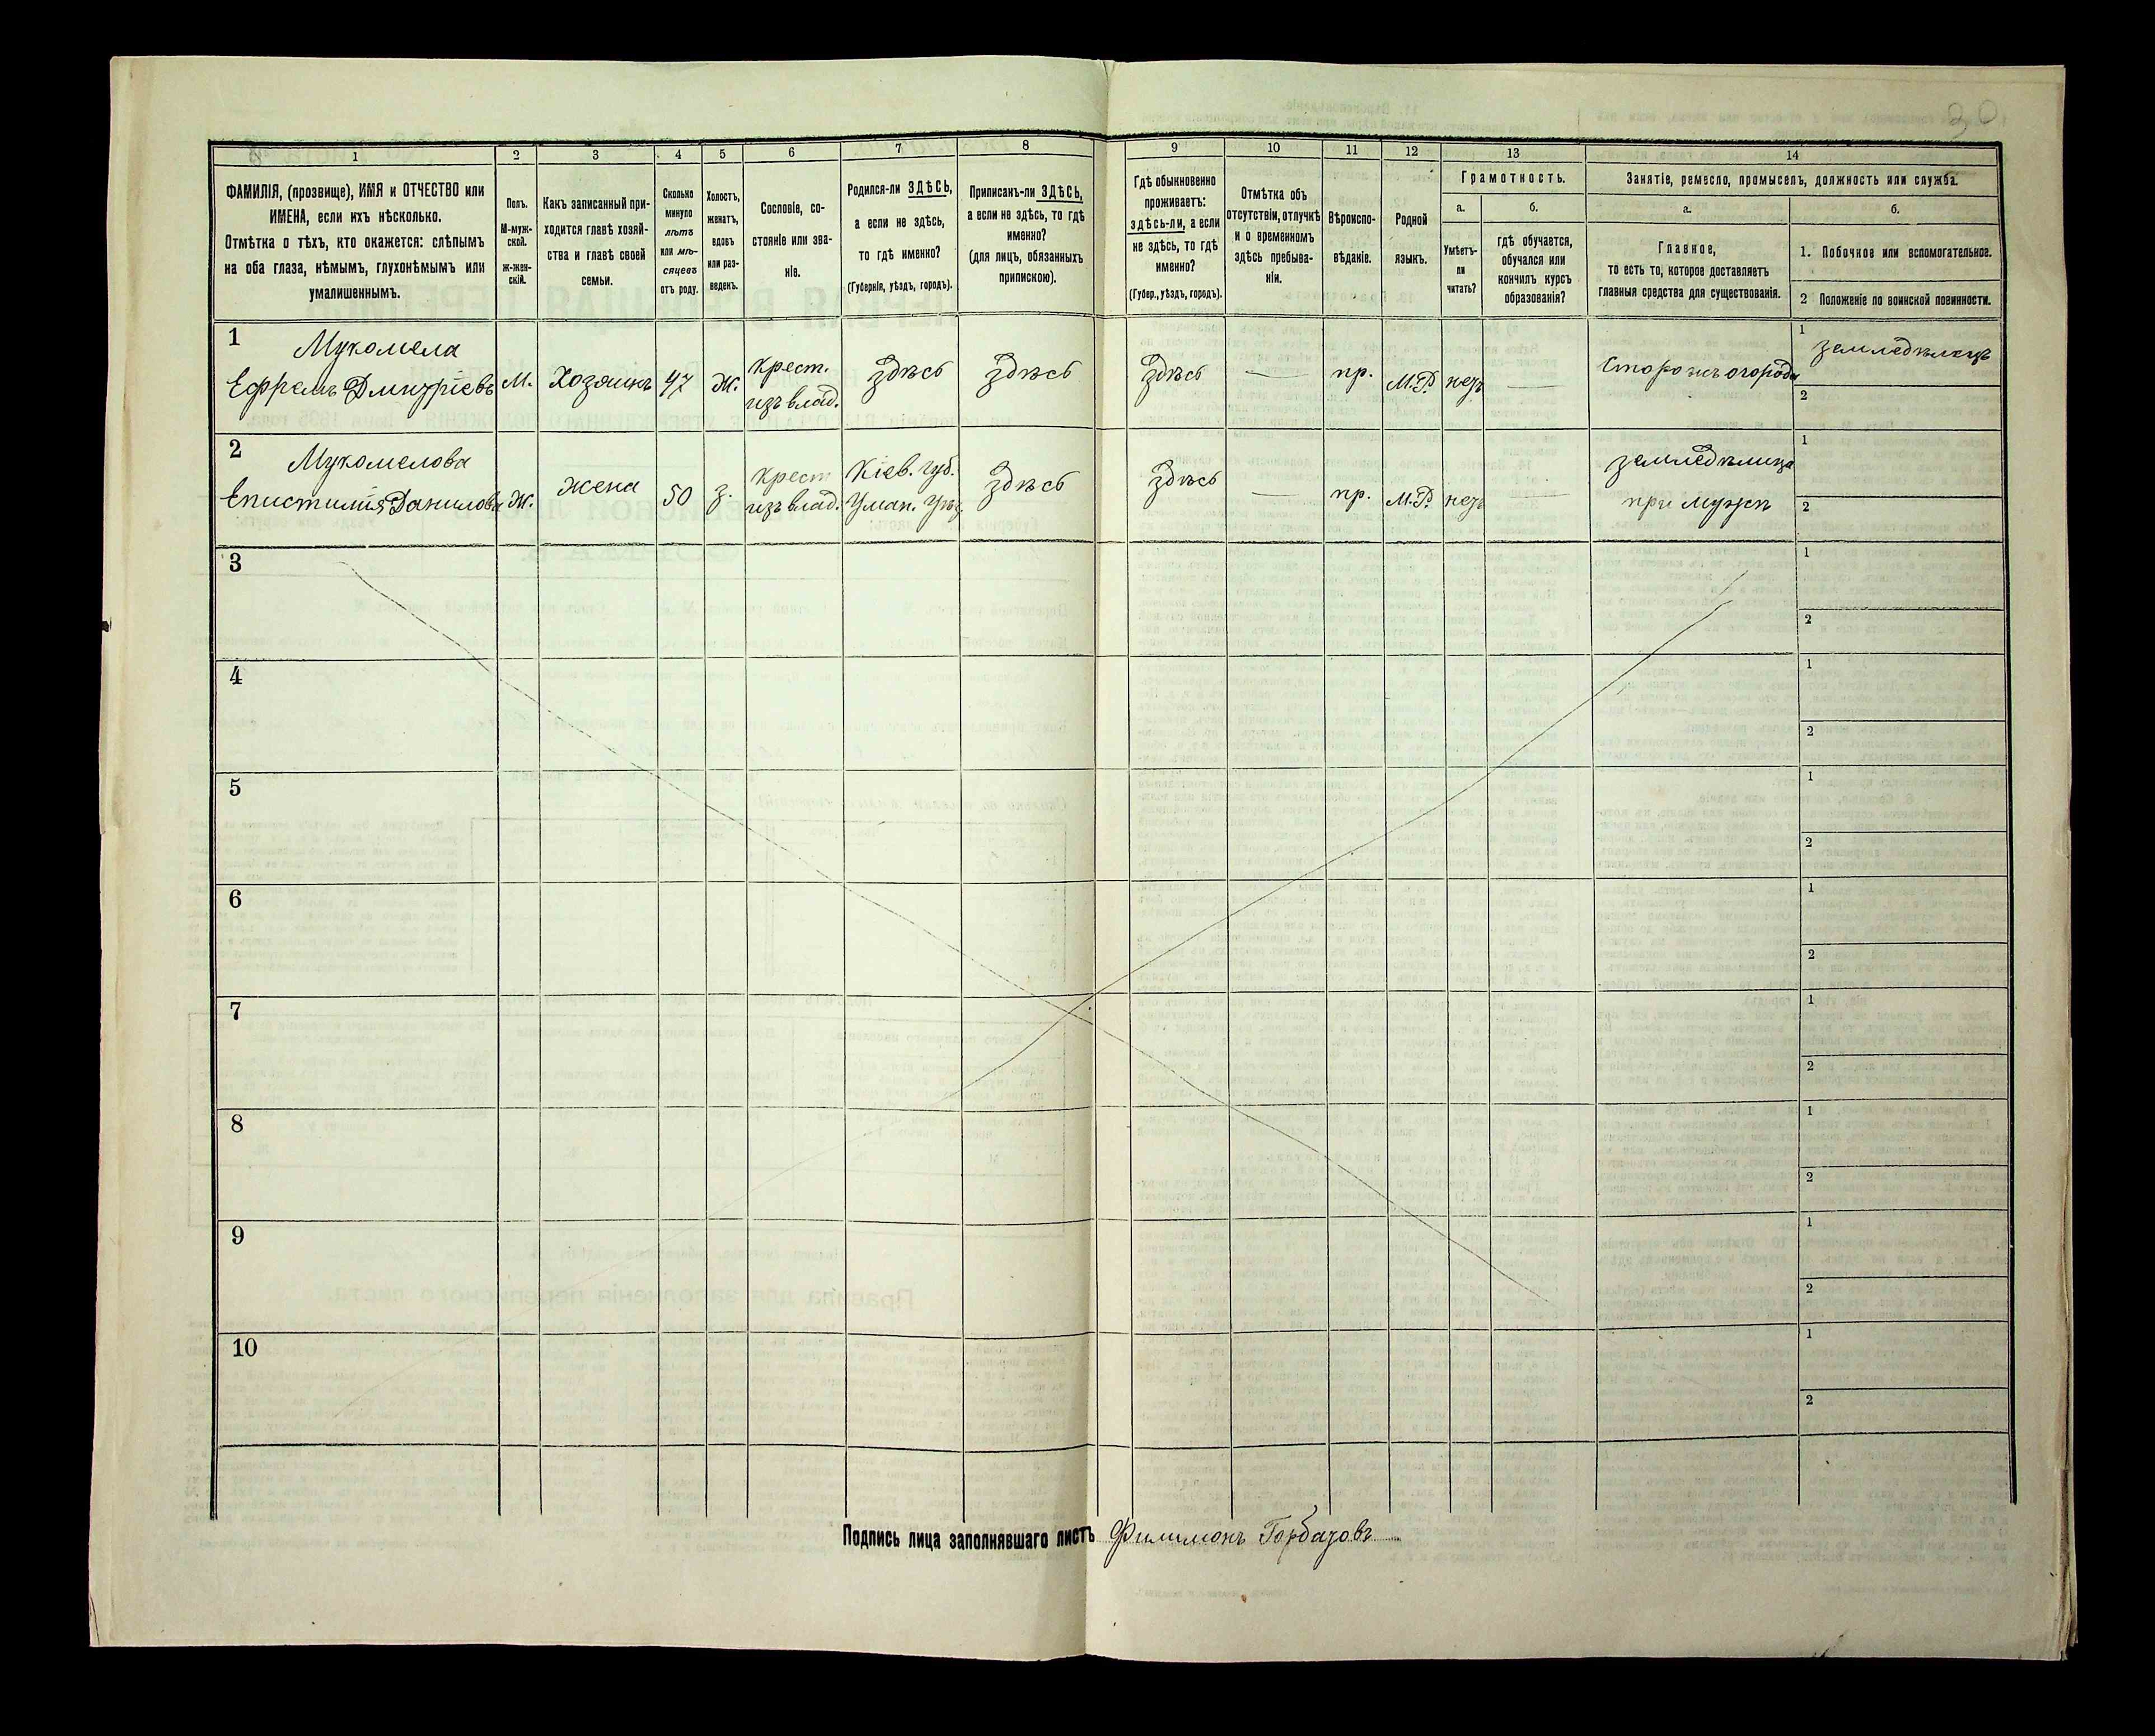 30
1 2 3 4 5 6 7 8 9 10 11 12 13 14
ФАМИЛІЯ, (прозвище), ИМЯ и ОТЧЕСТВО или
ИМЕНА, если ихъ нѣсколько.
Отмѣтка о тѣхъ, кто окажется: слѣпымъ
на оба глаза, нѣмымъ, глухонѣмымъ или
умалишеннымъ.
Полъ.
М-муж-
ской.
ж-жен-
скій.
Какъ записанный при-
ходится главѣ хозяй-
ства и главѣ своей
семьи.
Сколько
минуло
лѣтъ
или мѣ-
сяцевъ
отъ роду.
Холостъ,
женатъ,
вдовъ
или раз-
веденъ.
Сословіе, со-
стояніе или зва-
ніе.
Родился-ли ЗДѢСЬ,
а если не здѣсь,
то гдѣ именно?
(Губернія, уѣздъ, городъ).
Приписанъ-ли ЗДѢСЬ,
а если не здѣсь, то гдѣ
именно?
(для лицъ, обязанныхъ
припискою).
Гдѣ обыкновенно
проживаетъ:
здѣсь-ли, а если
не здѣсь, то гдѣ
именно?
(Губер., уѣздъ, городъ).
Отмѣтка объ
отсутствіи, отлучкѣ
и о временномъ
здѣсь пребыва-
ніи.
Вѣроиспо-
вѣданіе.
Родной
языкъ.
Грамотность.
а.
Умѣетъ-
ли
читать?
б.
гдѣ обучается,
обучался или
кончилъ курсъ
образованія?
Занятіе, ремесло, промыселъ, должность или служба.
а.
Главное,
то есть то, которое доставляетъ
главныя средства для существованія.
б.
1. Побочное или вспомогательное.
2 Положеніе по воинской повинности.
1
Мукомела
Ефремъ Дмитріевъ
М.
Хозяинъ
47
Ж.
Крест.
изъ влад.
Здѣсь
Здѣсь
Здѣсь
—
пр.
М.Р.
нетъ
—
Сторожъ огорода
1
земледѣлецъ
2
2
Мукомелова
Епистимія Данилова
Ж.
Жена
50
з.
Крест
изъ влад.
Кіев. губ.
Уман. Уѣз.
Здѣсь
Здѣсь
—
пр.
М.Р.
нетъ
—
земледѣлица
при мужѣ
1
2
3
1
2
4
1
2
5
1
2
6
1
2
7
1
2
8
1
2
9
1
2
10
1
2
Подпись лица заполнявшаго листъ Филимонъ Горбатовъ